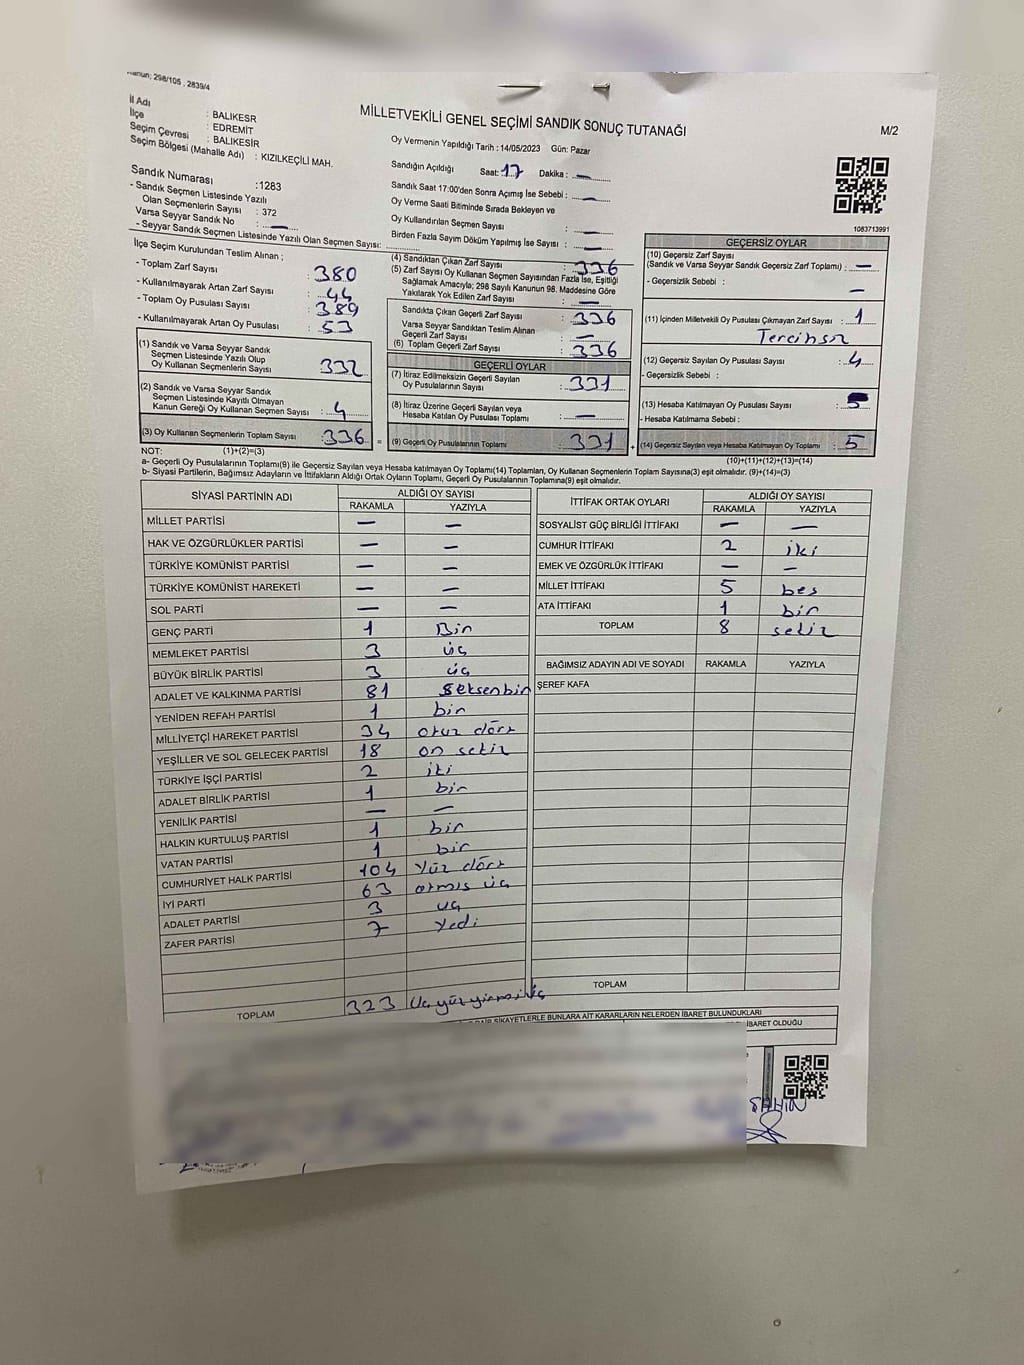 Kanun; 298/105 , 2839/4
İl Adı : BALIKESR
İlçe : EDREMİT
Seçim Çevresi : BALIKESİR
Seçim Bölgesi (Mahalle Adı) : KIZILKEÇİLİ MAH.
MİLLETVEKİLİ GENEL SEÇİMİ SANDIK SONUÇ TUTANAĞI
M/2
Oy Vermenin Yapıldığı Tarih : 14/05/2023 Gün: Pazar
Sandığın Açıldığı Saat: 17 Dakika : —
Sandık Saat 17:00'den Sonra Açımış İse Sebebi : —
Oy Verme Saati Bitiminde Sırada Bekleyen ve
Oy Kullandırılan Seçmen Sayısı : —
Birden Fazla Sayım Döküm Yapılmış İse Sayısı : —
1083713991
Sandık Numarası :1283
- Sandık Seçmen Listesinde Yazılı
Olan Seçmenlerin Sayısı : 372
Varsa Seyyar Sandık No : —
- Seyyar Sandık Seçmen Listesinde Yazılı Olan Seçmen Sayısı:
İlçe Seçim Kurulundan Teslim Alınan ;
- Toplam Zarf Sayısı : 380
- Kullanılmayarak Artan Zarf Sayısı : 44
- Toplam Oy Pusulası Sayısı : 389
- Kullanılmayarak Artan Oy Pusulası : 53
(1) Sandık ve Varsa Seyyar Sandık
Seçmen Listesinde Yazılı Olup
Oy Kullanan Seçmenlerin Sayısı : 332
(2) Sandık ve Varsa Seyyar Sandık
Seçmen Listesinde Kayıtlı Olmayan
Kanun Gereği Oy Kullanan Seçmen Sayısı : 4
(3) Oy Kullanan Seçmenlerin Toplam Sayısı :336 =
(4) Sandıktan Çıkan Zarf Sayısı : 336
(5) Zarf Sayısı Oy Kullanan Seçmen Sayısından Fazla İse, Eşitliği
Sağlamak Amacıyla; 298 Sayılı Kanunun 98. Maddesine Göre
Yakılarak Yok Edilen Zarf Sayısı : —
Sandıkta Çıkan Geçerli Zarf Sayısı : 336
Varsa Seyyar Sandıktan Teslim Alınan
Geçerli Zarf Sayısı : —
(6) Toplam Geçerli Zarf Sayısı : 336
GEÇERLİ OYLAR
(7) İtiraz Edilmeksizin Geçerli Sayılan
Oy Pusulalarının Sayısı : 331
(8) İtiraz Üzerine Geçerli Sayılan veya
Hesaba Katılan Oy Pusulası Toplamı : —
(9) Geçerli Oy Pusulalarının Toplamı : 331 +
GEÇERSİZ OYLAR
(10) Geçersiz Zarf Sayısı
(Sandık ve Varsa Seyyar Sandık Geçersiz Zarf Toplamı) : —
- Geçersizlik Sebebi : —
(11) İçinden Milletvekili Oy Pusulası Çıkmayan Zarf Sayısı : 1
(12) Geçersiz Sayılan Oy Pusulası Sayısı : 4
- Geçersizlik Sebebi :
(13) Hesaba Katılmayan Oy Pusulası Sayısı :
- Hesaba Katılmama Sebebi :
(14) Geçersiz Sayılan veya Hesaba Katılmayan Oy Toplamı : 5
NOT: (1)+(2)=(3) (10)+(11)+(12)+(13)=(14)
a- Geçerli Oy Pusulalarının Toplamı(9) ile Geçersiz Sayılan veya Hesaba katılmayan Oy Toplamı(14) Toplamları, Oy Kullanan Seçmenlerin Toplam Sayısına(3) eşit olmalıdır. (9)+(14)=(3)
b- Siyasi Partilerin, Bağımsız Adayların ve İttifakların Aldığı Ortak Oyların Toplamı, Geçerli Oy Pusulalarının Toplamına(9) eşit olmalıdır.
SİYASİ PARTİNİN ADI ALDIĞI OY SAYISI
RAKAMLA YAZIYLA
MİLLET PARTİSİ — —
HAK VE ÖZGÜRLÜKLER PARTİSİ — —
TÜRKİYE KOMÜNİST PARTİSİ — —
TÜRKİYE KOMÜNİST HAREKETİ — —
SOL PARTİ — —
GENÇ PARTİ 1 Bir
MEMLEKET PARTİSİ 3 üç
BÜYÜK BİRLİK PARTİSİ 3 üç
ADALET VE KALKINMA PARTİSİ 81 Seksenbir
YENİDEN REFAH PARTİSİ 1 bir
MİLLİYETÇİ HAREKET PARTİSİ 34 otuz dört
YEŞİLLER VE SOL GELECEK PARTİSİ 18 on sekiz
TÜRKİYE İŞÇİ PARTİSİ 2 iki
ADALET BİRLİK PARTİSİ 1 bir
YENİLİK PARTİSİ — —
HALKIN KURTULUŞ PARTİSİ 1 bir
VATAN PARTİSİ 1 bir
CUMHURİYET HALK PARTİSİ 104 Yüz dört
İYİ PARTİ 63 atmış üç
ADALET PARTİSİ 3 üç
ZAFER PARTİSİ 7 Yedi
TOPLAM 323 Üç yüz yirmi üç
İTTİFAK ORTAK OYLARI ALDIĞI OY SAYISI
RAKAMLA YAZIYLA
SOSYALİST GÜÇ BİRLİĞİ İTTİFAKI — —
CUMHUR İTTİFAKI 2 iki
EMEK VE ÖZGÜRLÜK İTTİFAKI — —
MİLLET İTTİFAKI 5 beş
ATA İTTİFAKI 1 bir
TOPLAM 8 sekiz
BAĞIMSIZ ADAYIN ADI VE SOYADI RAKAMLA YAZIYLA
ŞEREF KAFA
TOPLAM
ŞİKAYETLERLE BUNLARA AİT KARARLARIN NELERDEN İBARET BULUNDUKLARI
İBARET OLDUĞU
ŞAHİN